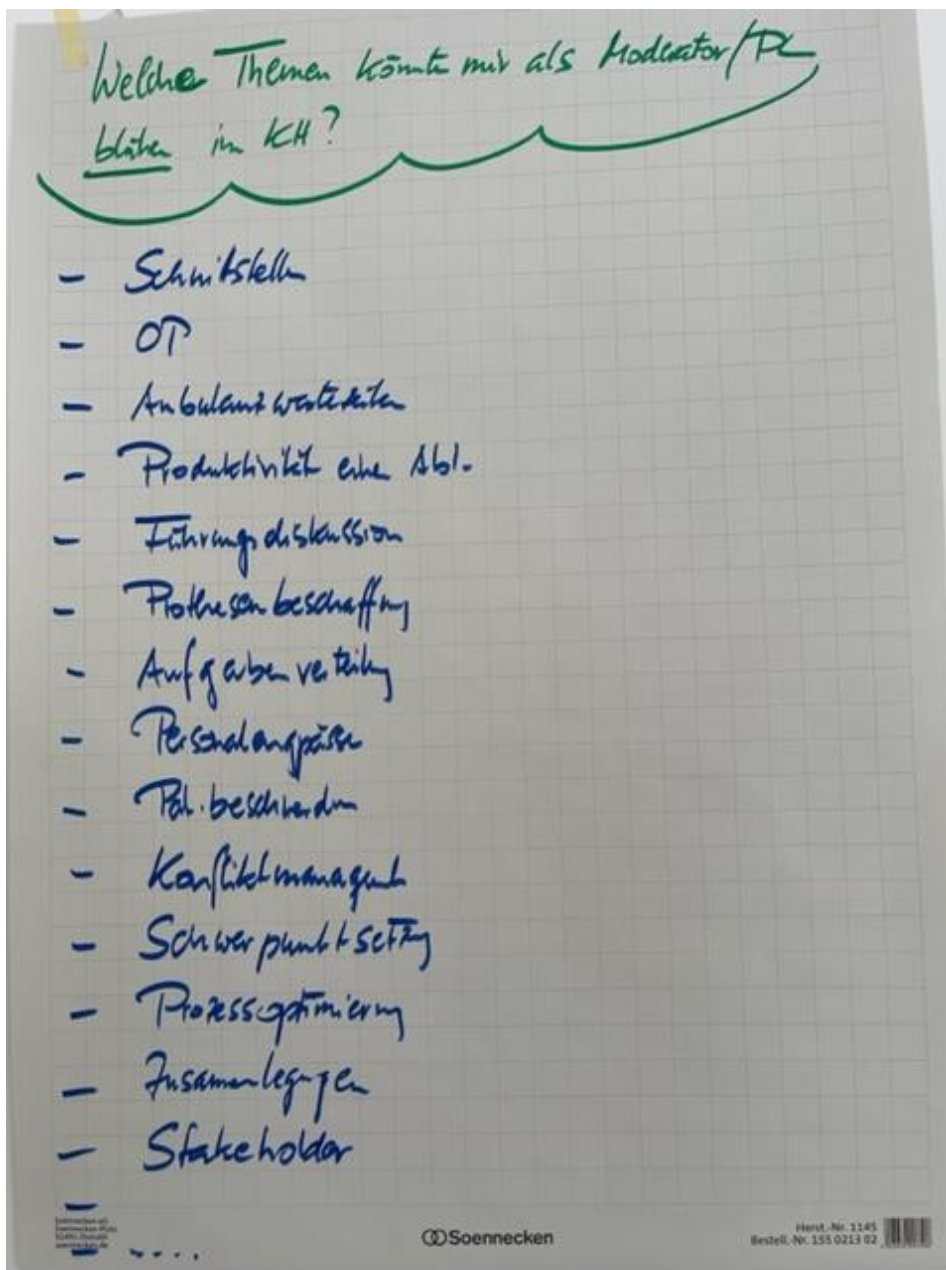 Welche Themen könnte mir als Moderator/PL
blühen im KH?
- Schnittstellen
- OP
- Ambulanzwartezeiten
- Produktivität einer Abt.
- Führungsdiskussion
- Prothesenbeschaffung
- Aufgabenverteilung
- Personalengpässe
- Pat.beschwerden
- Konfliktmanagement
- Schwerpunktsetzung
- Prozessoptimierung
- Zusamenlegungen
- Stakeholder
-
- ....
Soennecken
Herst.-Nr. 1145
Bestell.-Nr. 155 0213 02